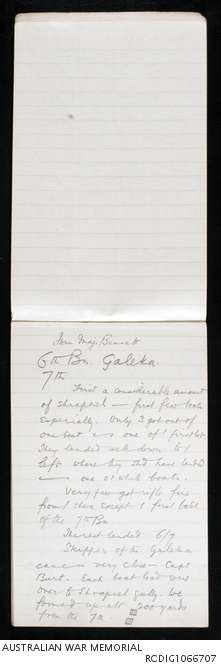 Gen. Maj. Bennett
6th Bn. Galeka.
7th
Found a considerable amount
of shrapnel — first few boats
especially. Only 3 got out of
one boat & one of / first lot.
They landed well down to /
left where they shd have landed
— one or whole boats.
Very few got rifle fire
from there except / first lot
of the 7th Bn
landed 6/7
Skipper of the Galeka
came in very close — Capt
Burt. Each boat load was
over to Shrapnel Gully. We
formed up abt 200 yards
from the 7th.
AUSTRALIAN WAR MEMORIAL
RCDIG1066707